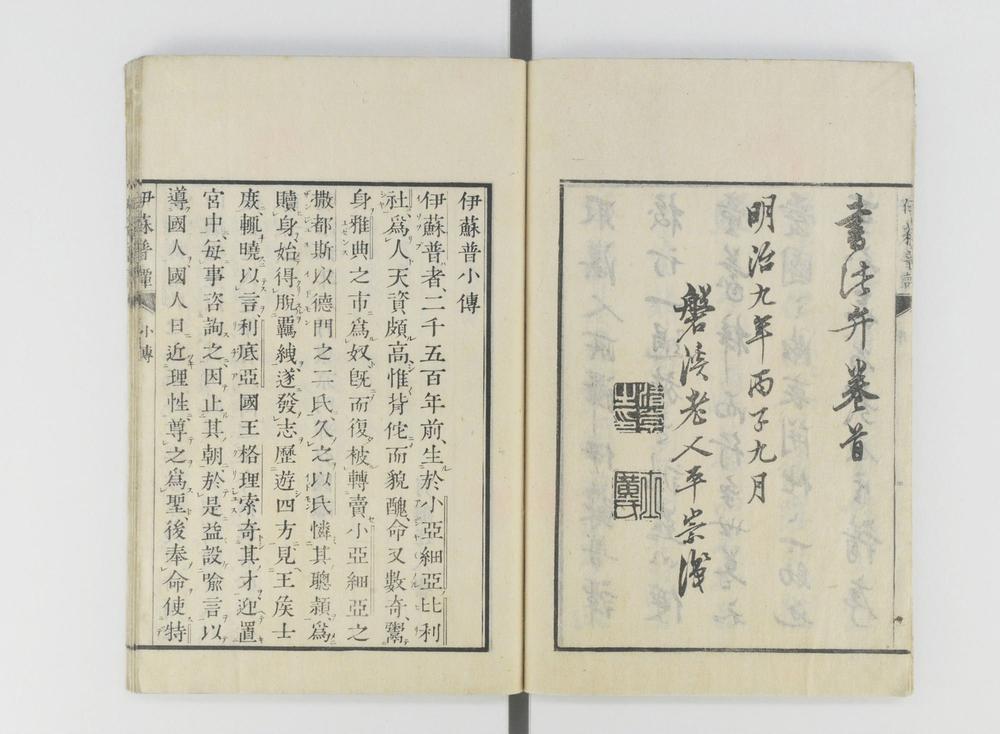 書弁卷首
明治九年丙子九月
磐渓老人平崇識
清崇之印
士廣氏
伊蘇普小傳
伊蘇普者、二千五百年前、生於小亞細亞比利
社爲人天資頗高惟背佗而貌醜、命又數奇、鬻
身雅典之市爲奴旣而復被轉賣小亞細亞之
撒都斯以德門之二氏久之以氏憐其聰頴爲
贖身始得脫覊絏、遂發志歷遊四方見王矦士
庻輒曉以言利底亞國王格理索奇其才迎置
宮中、每事咨詢之因止其朝於是益設喩言以
導國人國人曰近理性尊之爲聖後奉命使特
伊蘇普譚
小傳